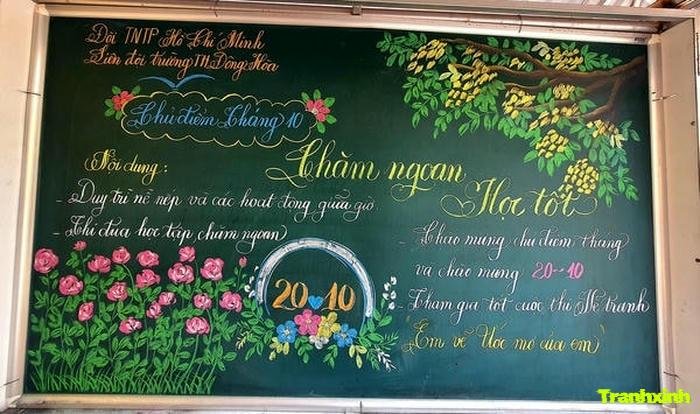 Đội TNTP Hồ Chí Minh
Liên đội trường TH Đông Hòa
Chủ điểm tháng 10
Chăm ngoan
Học tốt
Nội dung:
- Duy trì nề nếp và các hoạt động giữa giờ
- Thi đua học tập chăm ngoan
- Chào mừng chủ điểm tháng
và chào mừng 20-10
- Tham gia tốt cuộc thi vẽ tranh
Em vẽ Ước mơ của em
20 10
Tranhxinh